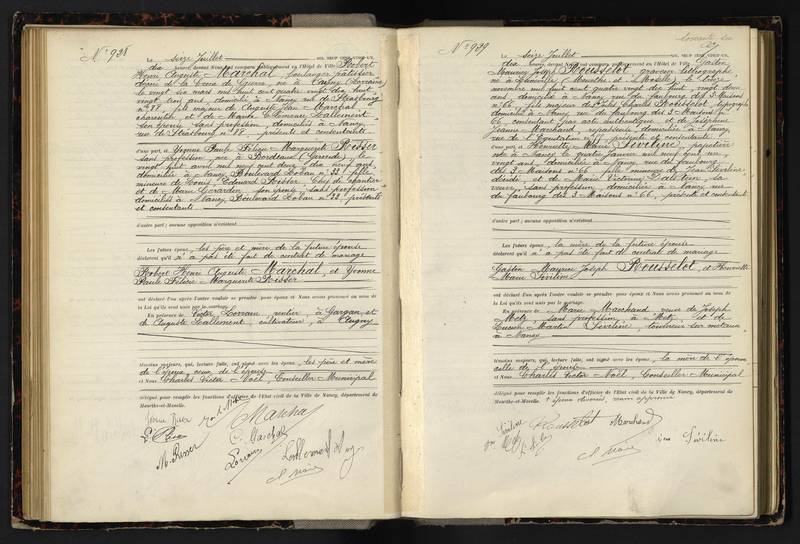 N° 938
Le Seize Juillet mil neuf cent vingt-un,
dix heures devant Nous ont comparu publiquement en l'Hôtel de Ville Robert
Henri Auguste Marchal, boulanger pâtissier
décoré de la Croix de Guerre, né à Cuigny (Lorraine)
le vingt six mars mil huit cent quatre vingt dix huit,
vingt trois ans, domicilié à Nancy rue de Strasbourg
n° 88, fils majeur de Auguste Jean Marchal,
charcutier, et de Marie Clémence Lallement
son épouse, sans profession, domiciliés à Nancy
rue de Strasbourg n° 88, présents et consentants
d'une part, et Yvonne Paule Félicie Marguerite Risser
sans profession, née à Bordeaux (Gironde), le
vingt huit avril mil neuf cent deux, dix neuf ans,
domiciliée à Nancy Boulevard Lobau n° 33, fille
mineure de Louis Edouard Risser, chef de chantier
et de Marie Girardin, son épouse, sans profession
domiciliés à Nancy Boulevard Lobau n° 33, présents
et consentants
d'autre part; aucune opposition n'existant
Les futurs époux, les père et mère de la future épouse
déclarent qu'il n'a pas été fait de contrat de mariage
Robert Henri Auguste Marchal, et Yvonne
Paule Félicie Marguerite Risser
ont déclaré l'un après l'autre vouloir se prendre pour époux et Nous avons prononcé au nom de
la Loi qu'ils sont unis par le mariage.
En présence de Victor Lorrain, rentier, à Gargan, et
de Auguste Lallement, cultivateur, à Augny
témoins majeurs, qui, lecture faite, ont signé avec les époux, les père et mère
de l'époux, ceux de l'épouse
et Nous Charles Victor Noël, Conseiller Municipal
délégué pour remplir les fonctions d'officier de l'État civil de la Ville de Nancy, département de
Meurthe-et-Moselle.
Yvonne Risser
Marchal
M. Risser
C. Marchal
Lorrain
Lallement Aug
N° 939
Le Seize Juillet mil neuf cent vingt-un,
dix heures devant Nous ont comparu publiquement en l'Hôtel de Ville Gaston
Maurice Joseph Rousselot, graveur lithographe,
né à (Meurthe et Moselle), le
novembre mil huit cent quatre vingt dix huit, vingt deux
ans, domicilié à Nancy, rue du faubourg des 3 Maisons
n° 66, fils majeur de Jules Charles Rousselot, typographe
domicilié à Nancy rue du faubourg des 3 Maisons n°
66, consentant par acte authentique, et de Joséphine
Jeanne Marchand, repasseuse, domiciliée à Nancy,
rue de l'Equitation n° présente et consentante
d'une part, et Henriette Marie Séveline, papetière
née à Nancy le quatre janvier mil neuf cent un,
vingt ans, domiciliée à Nancy rue du faubourg
des 3 Maisons n° 66, fille mineure de Jean Séveline
décédé et de Marie Victorine sa
veuve, sans profession, domiciliée à Nancy rue
du faubourg des 3 Maisons n° 66, présente et consentante
d'autre part; aucune opposition n'existant
Les futurs époux, la mère de la future épouse
déclarent qu'il n'a pas été fait de contrat de mariage
Gaston Maurice Joseph Rousselot, et Henriette
Marie Séveline
ont déclaré l'un après l'autre vouloir se prendre pour époux et Nous avons prononcé au nom de
la Loi qu'ils sont unis par le mariage.
En présence de Marie Marchand, veuve de Joseph
Metz, sans profession, à Metz, et de
Lucien Martin Séveline, tourneur sur métaux
à Nancy
témoins majeurs, qui, lecture faite, ont signé avec les époux, la mère de l'époux
celle de l'épouse
et Nous Charles Victor Noël, Conseiller Municipal
délégué pour remplir les fonctions d'officier de l'État civil de la Ville de Nancy, département de
Meurthe-et-Moselle.
Rousselot Marchand
Séveline